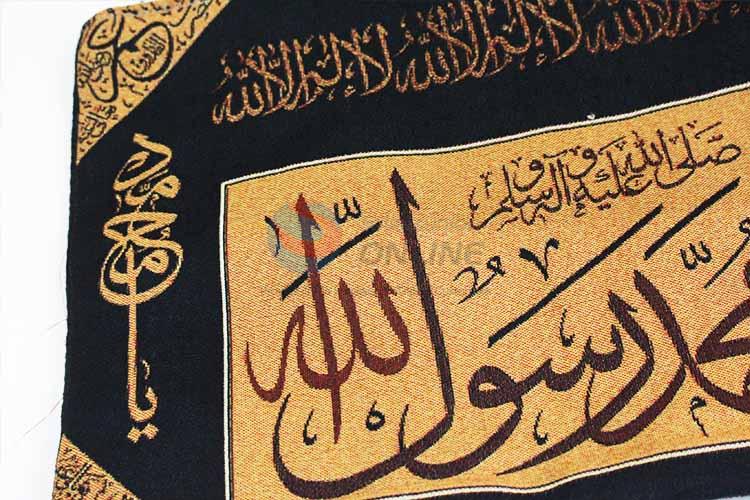 لا إله إلا الله لا إله إلا الله لا إله إلا الله
صلى الله عليه وآله وسلم
محمد رسول الله
يا محمد
ONLINE